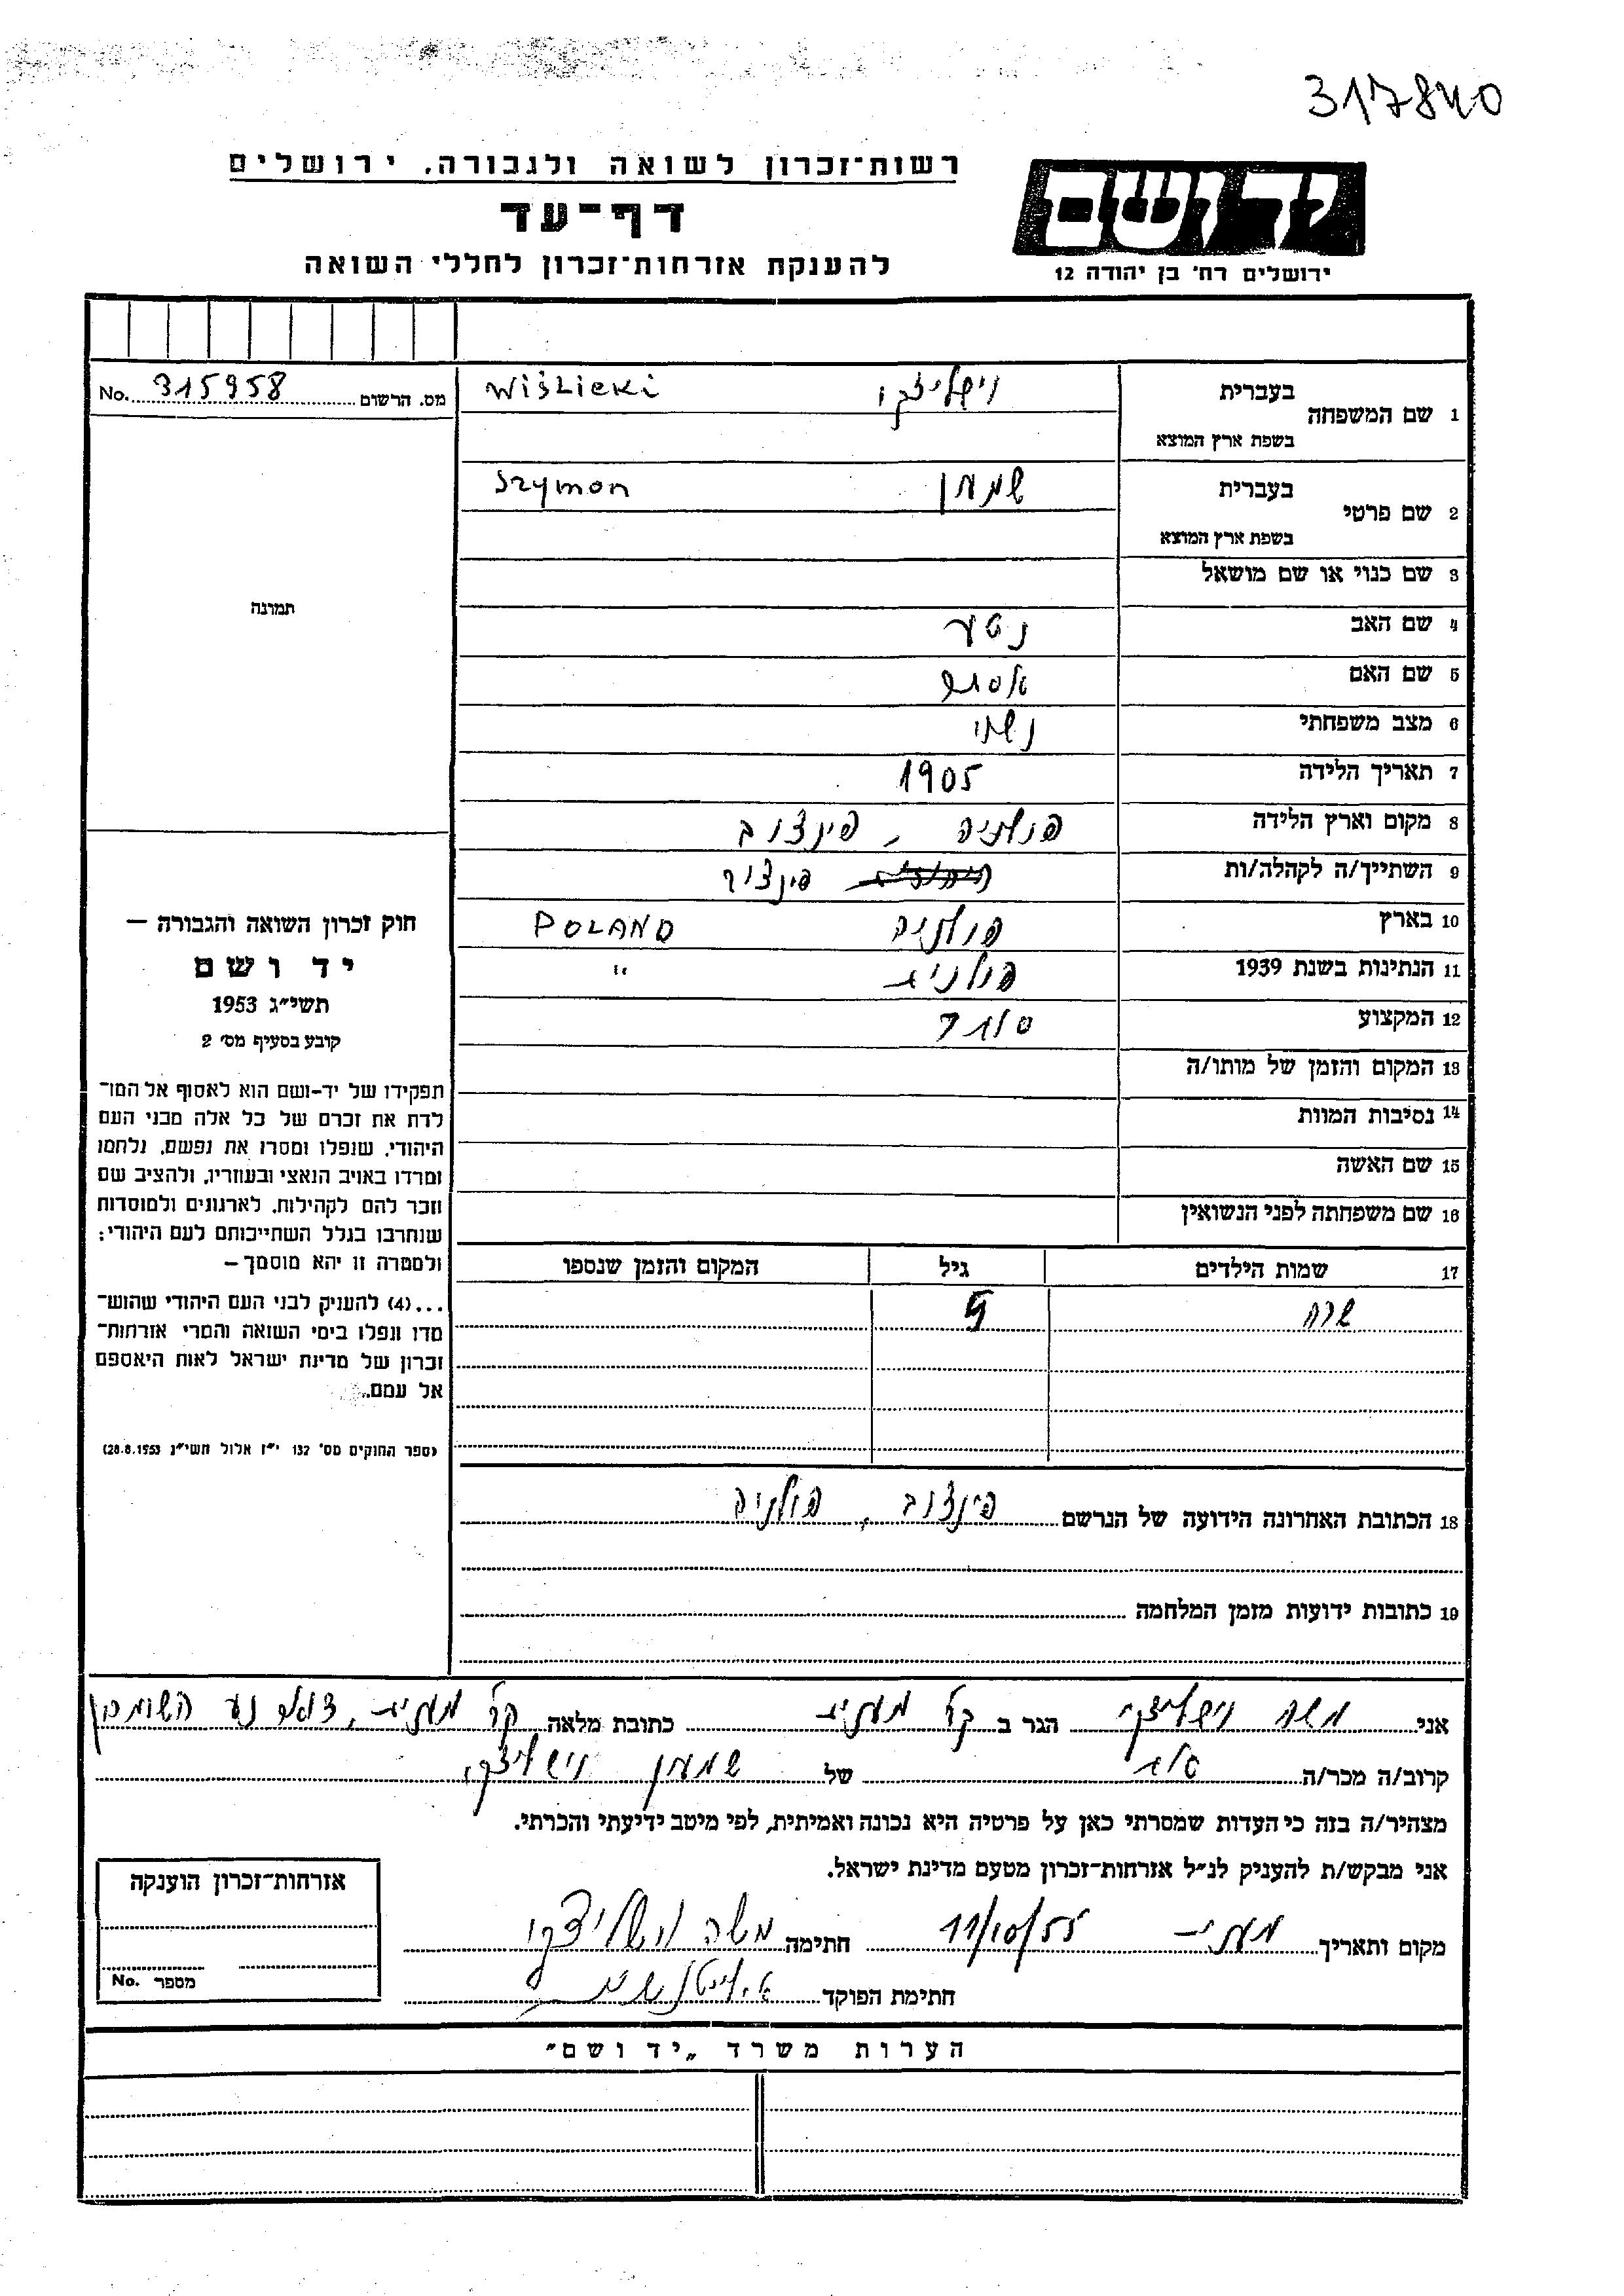 317840
רשות־זכרון לשואה ולגבורה, ירושלים
דף־עד
להענקת אזרחות־זכרון לחללי השואה
יד ושם
ירושלים רח' בן יהודה 12
מס. הרשום 315958 No.
1 שם המשפחה
בעברית וישליצקי Wiślicki
בשפת ארץ המוצא
2 שם פרטי
בעברית שמעון Szymon
בשפת ארץ המוצא
3 שם כנוי או שם מושאל
4 שם האב נטע
5 שם האם
6 מצב משפחתי נשוי
7 תאריך הלידה 1905
8 מקום וארץ הלידה פולניה, פינצוב
9 השתייך/ה לקהלה/ות פינצוב
10 בארץ פולניה POLAND
11 הנתינות בשנת 1939 פולנית "
12 המקצוע סוחר
13 המקום והזמן של מותו/ה
14 נסיבות המוות
15 שם האשה
16 שם משפחתה לפני הנשואין
17 שמות הילדים גיל המקום והזמן שנספו
שרה 5
18 הכתובת האחרונה הידועה של הנרשם פינצוב, פולניה
19 כתובות ידועות מזמן המלחמה
תמונה
חוק זכרון השואה והגבורה —
יד ושם
תשי״ג 1953
קובע בסעיף מס' 2
תפקידו של יד-ושם הוא לאסוף אל המו־
לדת את זכרם של כל אלה מבני העם
היהודי, שנפלו ומסרו את נפשם, נלחמו
ומרדו באויב הנאצי ובעוזריו, ולהציב שם
וזכר להם לקהילות, לארגונים ולמוסדות
שנחרבו בגלל השתייכותם לעם היהודי;
ולמטרה זו יהא מוסמך —
...(4) להעניק לבני העם היהודי שהוש־
מדו ונפלו בימי השואה והמרי אזרחות־
זכרון של מדינת ישראל לאות היאספם
אל עמם.
(ספר החוקים מס' 132 י״ז אלול תשי״ג 28.8.1953)
אני משה וישליצקי הגר ב קב' מענית כתובת מלאה קב' מענית, דואר נע השומרון
קרוב/ה מכר/ה של שמעון וישליצקי
מצהיר/ה בזה כי העדות שמסרתי כאן על פרטיה היא נכונה ואמיתית, לפי מיטב ידיעתי והכרתי.
אני מבקש/ת להעניק לנ״ל אזרחות־זכרון מטעם מדינת ישראל.
מקום ותאריך מענית 11/10/55 חתימה משה וישליצקי
חתימת הפוקד
אזרחות־זכרון הוענקה
מספר No.
הערות משרד „יד ושם״